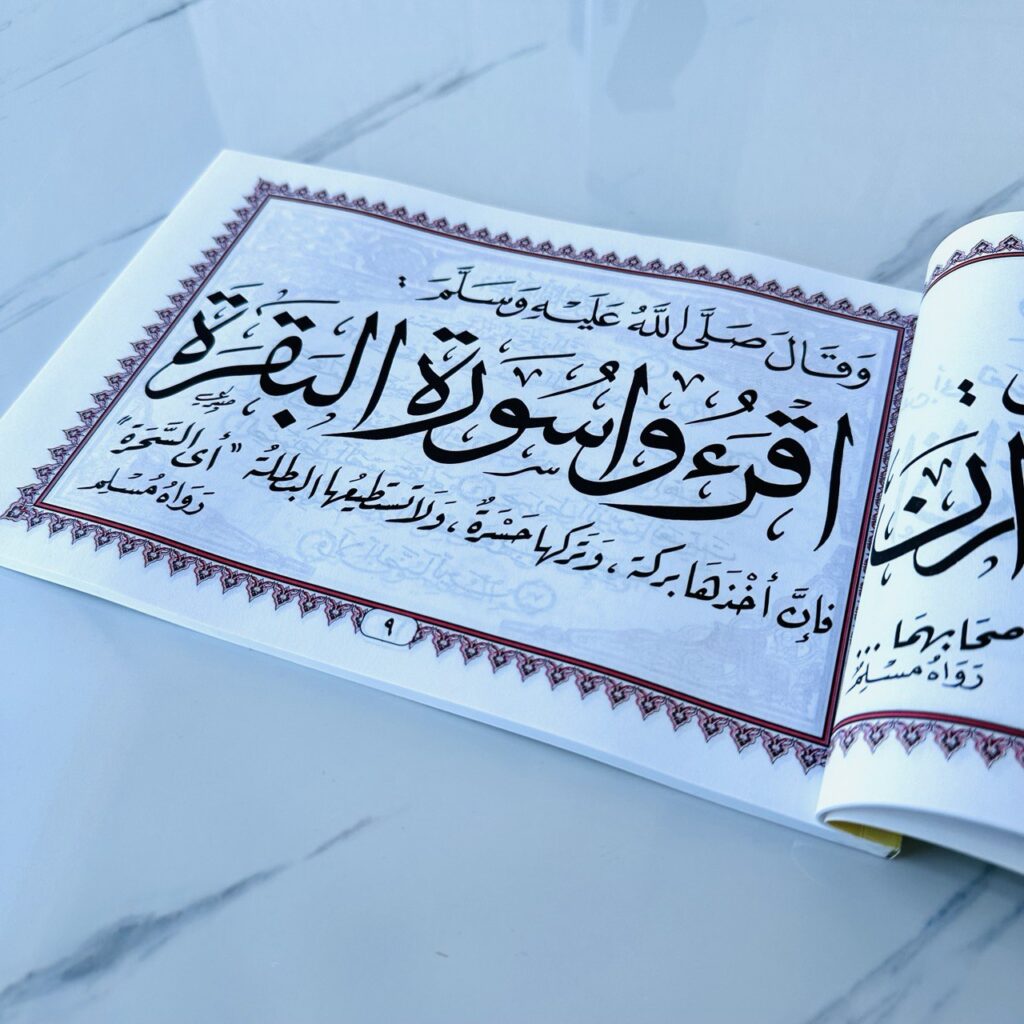 وَقَالَ صَلَّى اللَّهُ عَلَيْهِ وَسَلَّمَ :
اقْرَءُوا سُورَةَ الْبَقَرَةِ
فَإِنَّ أَخْذَهَا بركة ، وَتَرْكَهَا حَسْرَةٌ ، وَلَا تَسْتَطِيعُهَا البَطَلَةُ " أى السَّحَرَةُ "
رَوَاهُ مُسْلِم
٩
صحَابهمَا ...
رَوَاهُ مسْلِمٌ